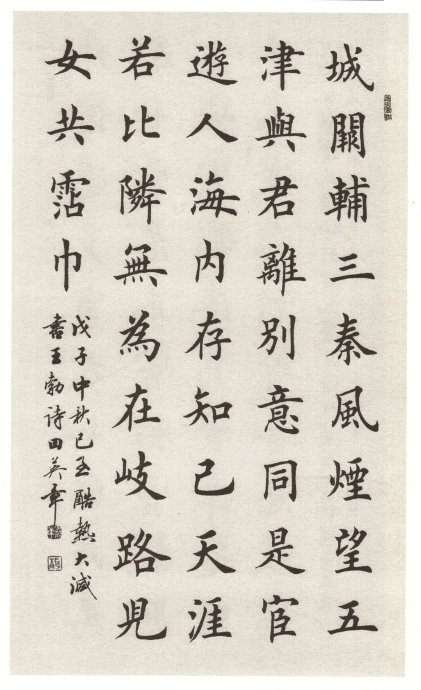 城闕輔三秦風煙望五
津與君離別意同是宦
遊人海内存知己天涯
若比隣無為在岐路兒
女共霑巾
戊子中秋已至酷熱大減
書王勃詩田英章